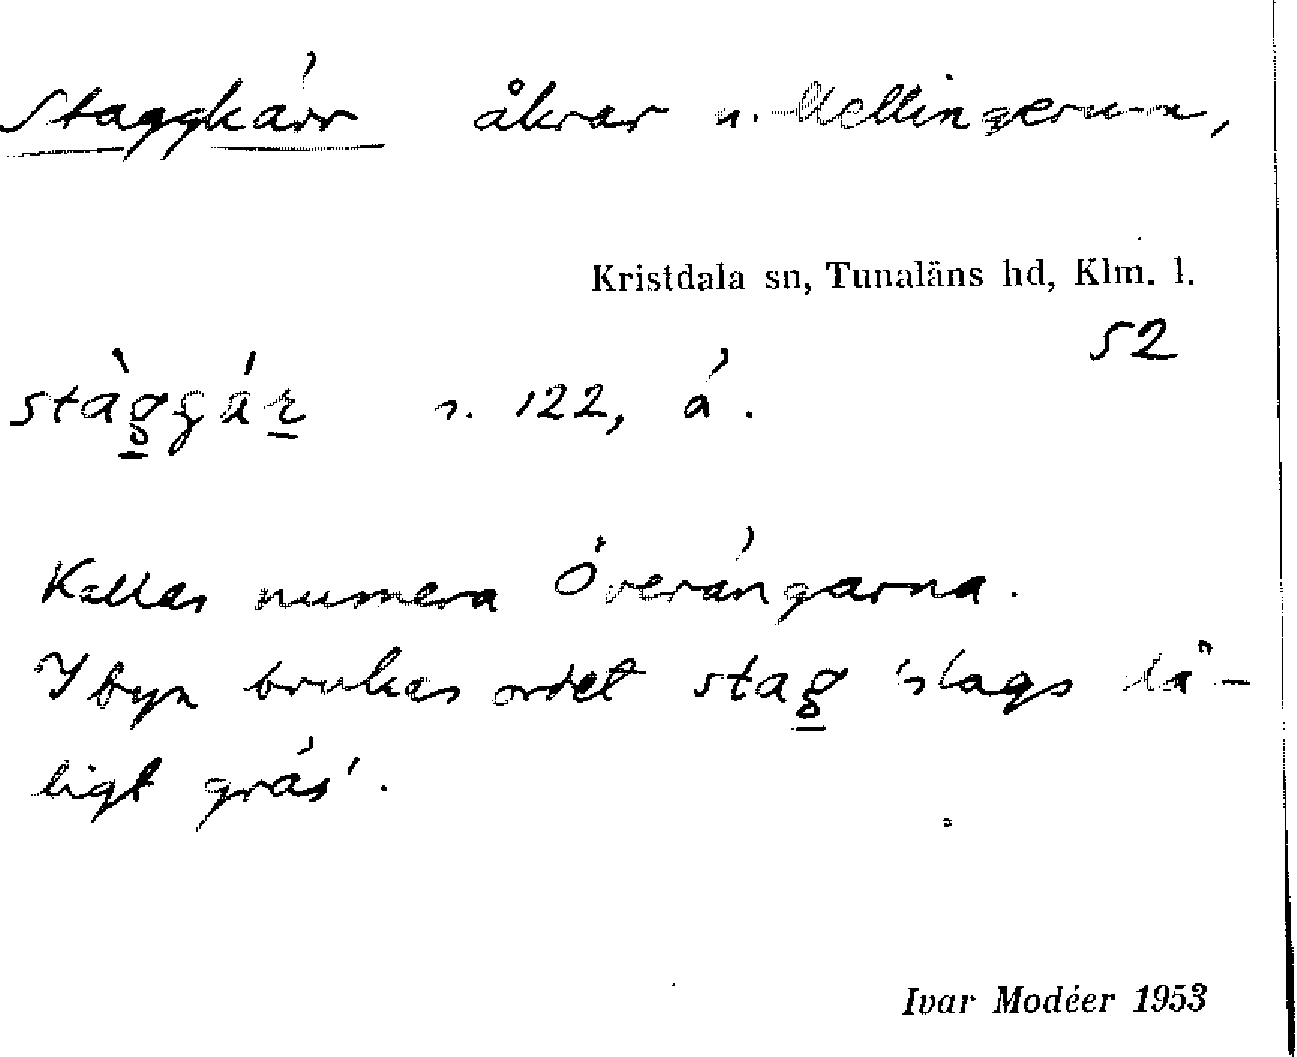 Staggkärr åkrar n. Mellingerum,
Kristdala sn, Tunaläns hd, Klm. l.
52
stàggá̈r n. 122, ä.
Kallas numera Överängarna.
I byn brukas ordet stag 'slags då-
ligt gräs'.
Ivar Modéer 1953